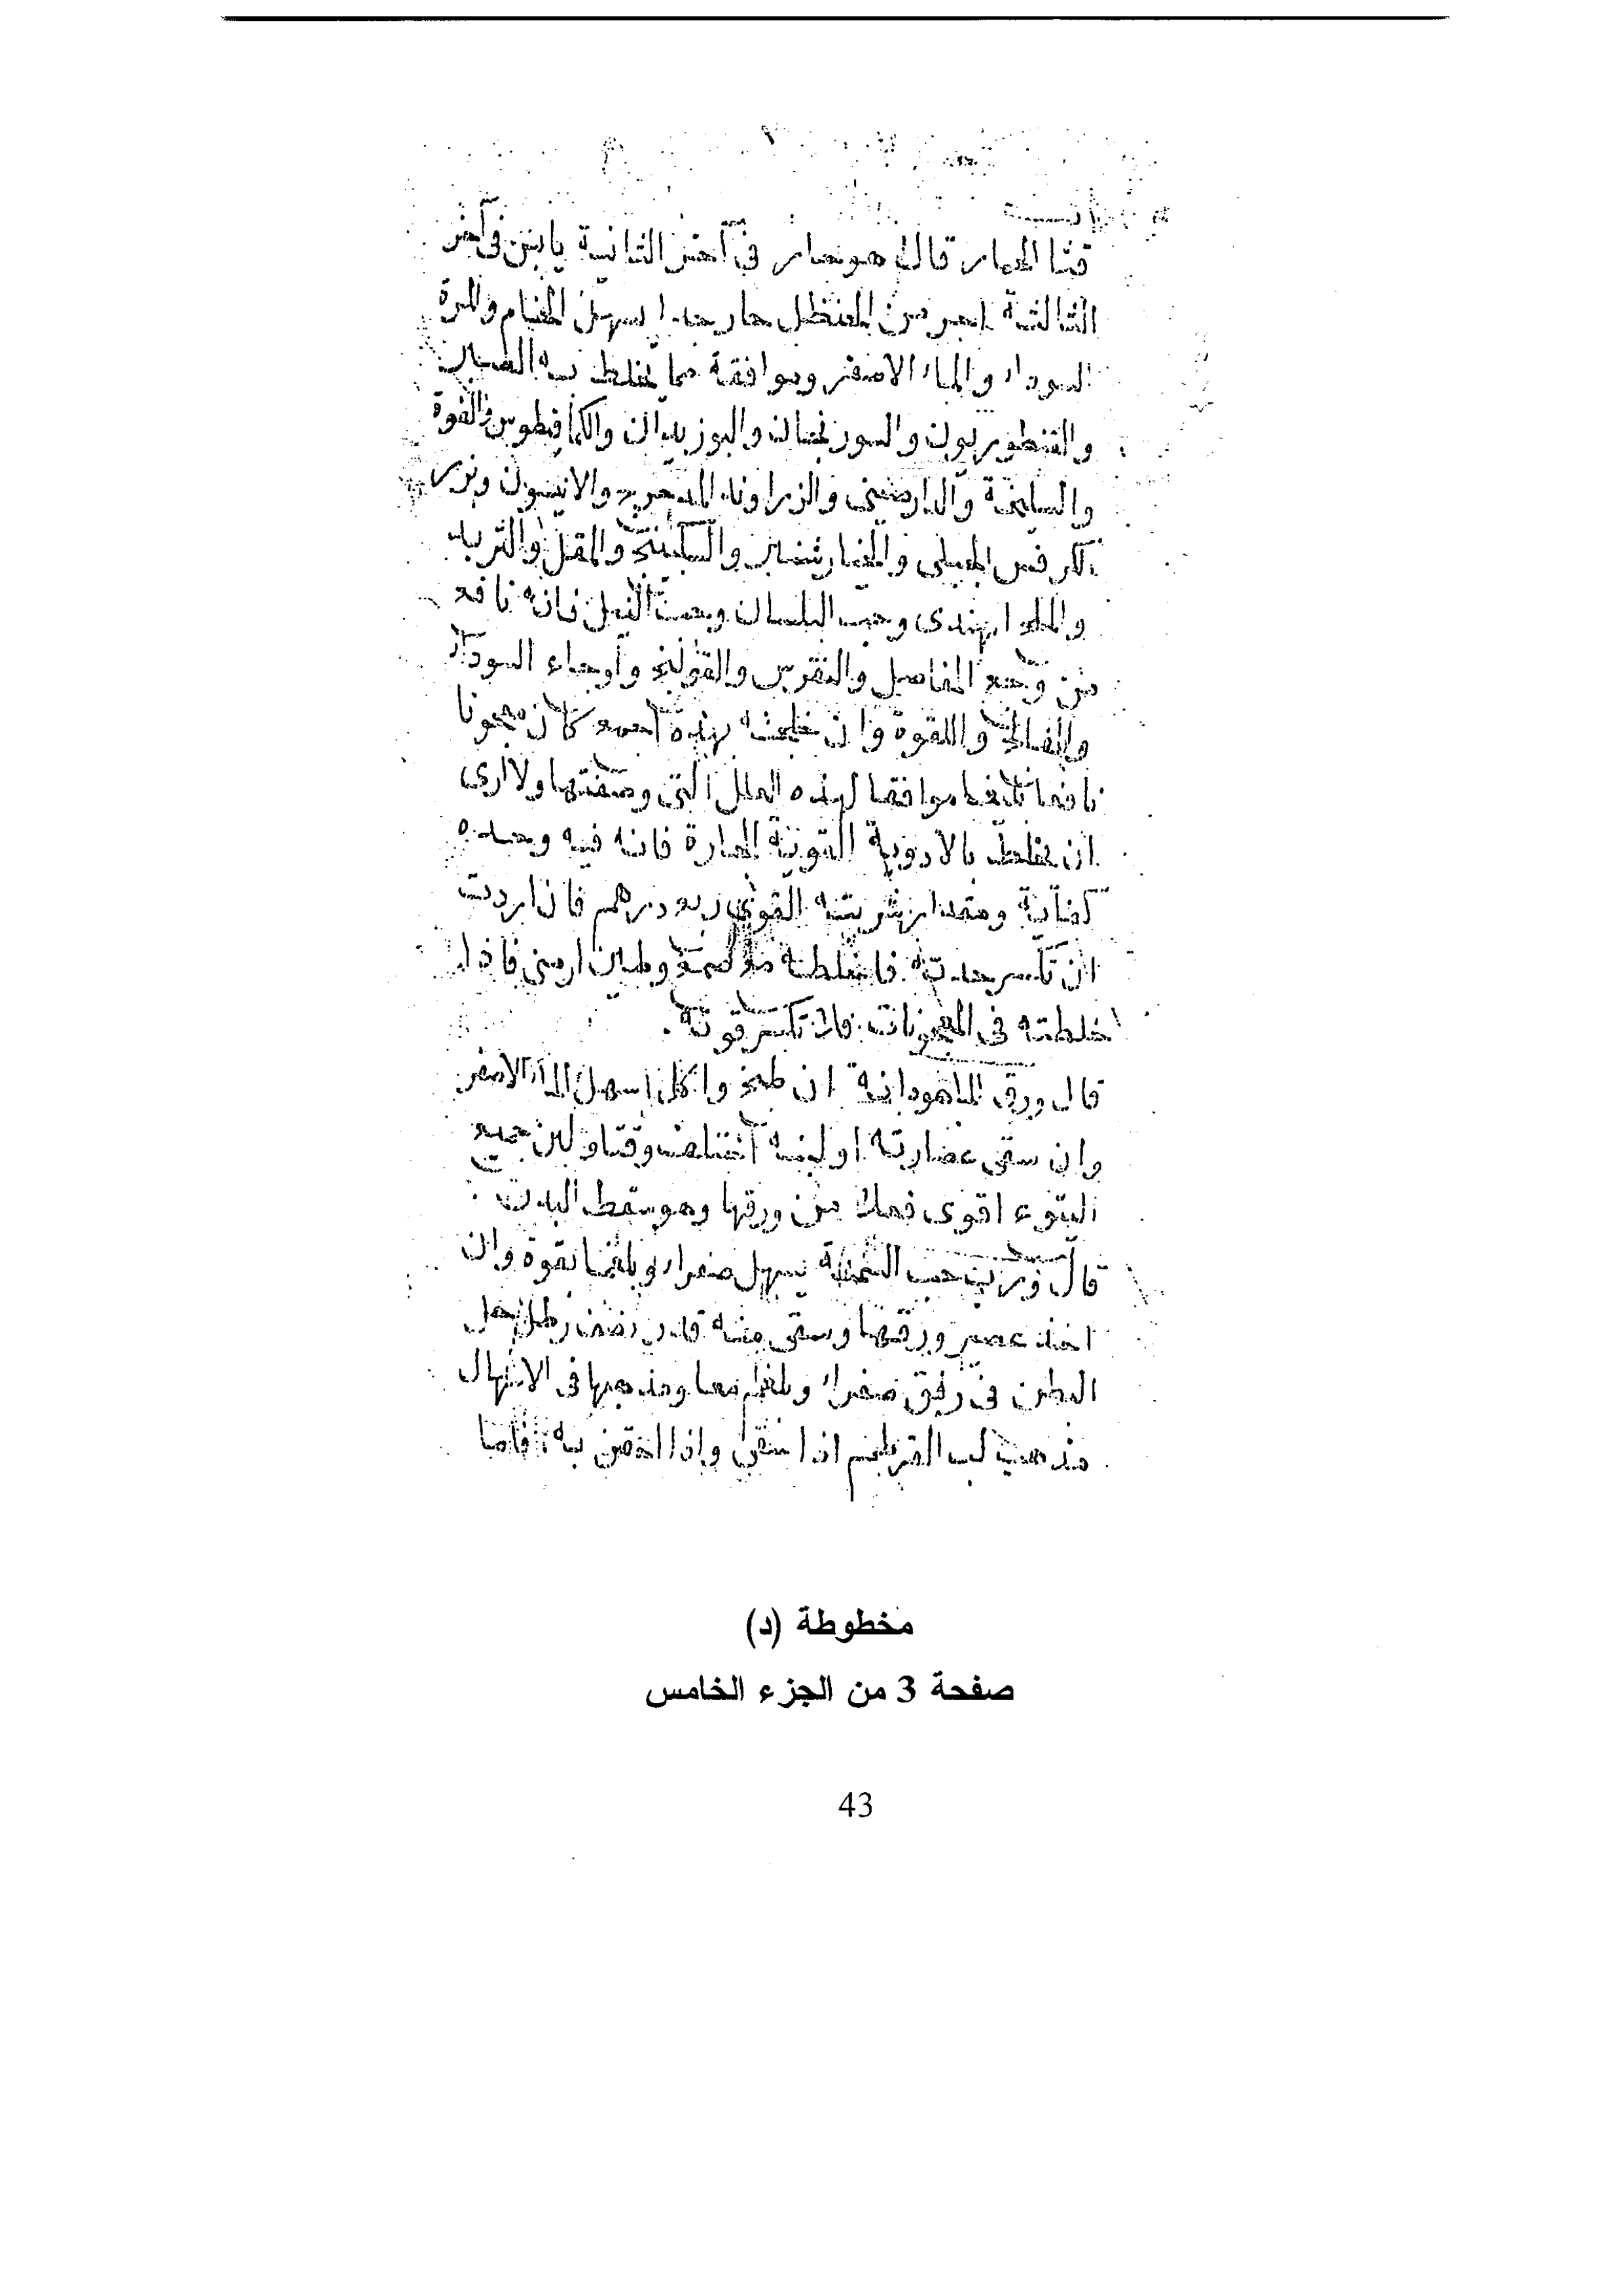 قثا الحمار قال هو حار فى آخر الثانية يابس فى آخر
الثالثة من الحنظل حار جدا يسهل البلغم والمرة
السوداء والماء الاصفر وموافقة مما يخلط به الصبر
والقنطوريون والسورنجان والبوزيدان والكمافيطوس والفوة
والسليخة والدارصينى والزراوند المدحرج والانيسون وبزر
الكرفس الجبلى والسكبينج والمقل والتربد
والملح الهندى وحب البلسان وحب النيل فانه نافع
من وجع المفاصل والنقرس والقولنج وأوجاع السوداء
والفالج واللقوة وان خلطته بهذه أجمع كان معجونا
نافعا بليغا موافقا لهذه العلل التى وصفتها ولا ارى
ان يخلط بالادوية القوية الحارة فانه فيه وحده
كفاية ومقدار شربته القوى ربع درهم فان اردت
ان تكسر حدته فاخلطه وطين ارمنى فاذا
خلطته فى المعجونات فلا تكسر قوته.
قال ورق الماهودانة ان طبخ واكل اسهل الماء الاصفر
وان سقى عصارته او لبنه ولبن جميع
اليتوع اقوى فعلا من ورقها وهو يسقط البدن
قال حب يسهل صفراء وبلغما بقوة وان
اخذ عصير ورقها وسقى منه قدر نصف رطل حل
البطن فى رفق صفراء وبلغم معا ومذهبها فى الاسهال
مذهب لب القرطم اذا سقى واذا احتقن به فاما
مخطوطة (د)
صفحة 3 من الجزء الخامس
43